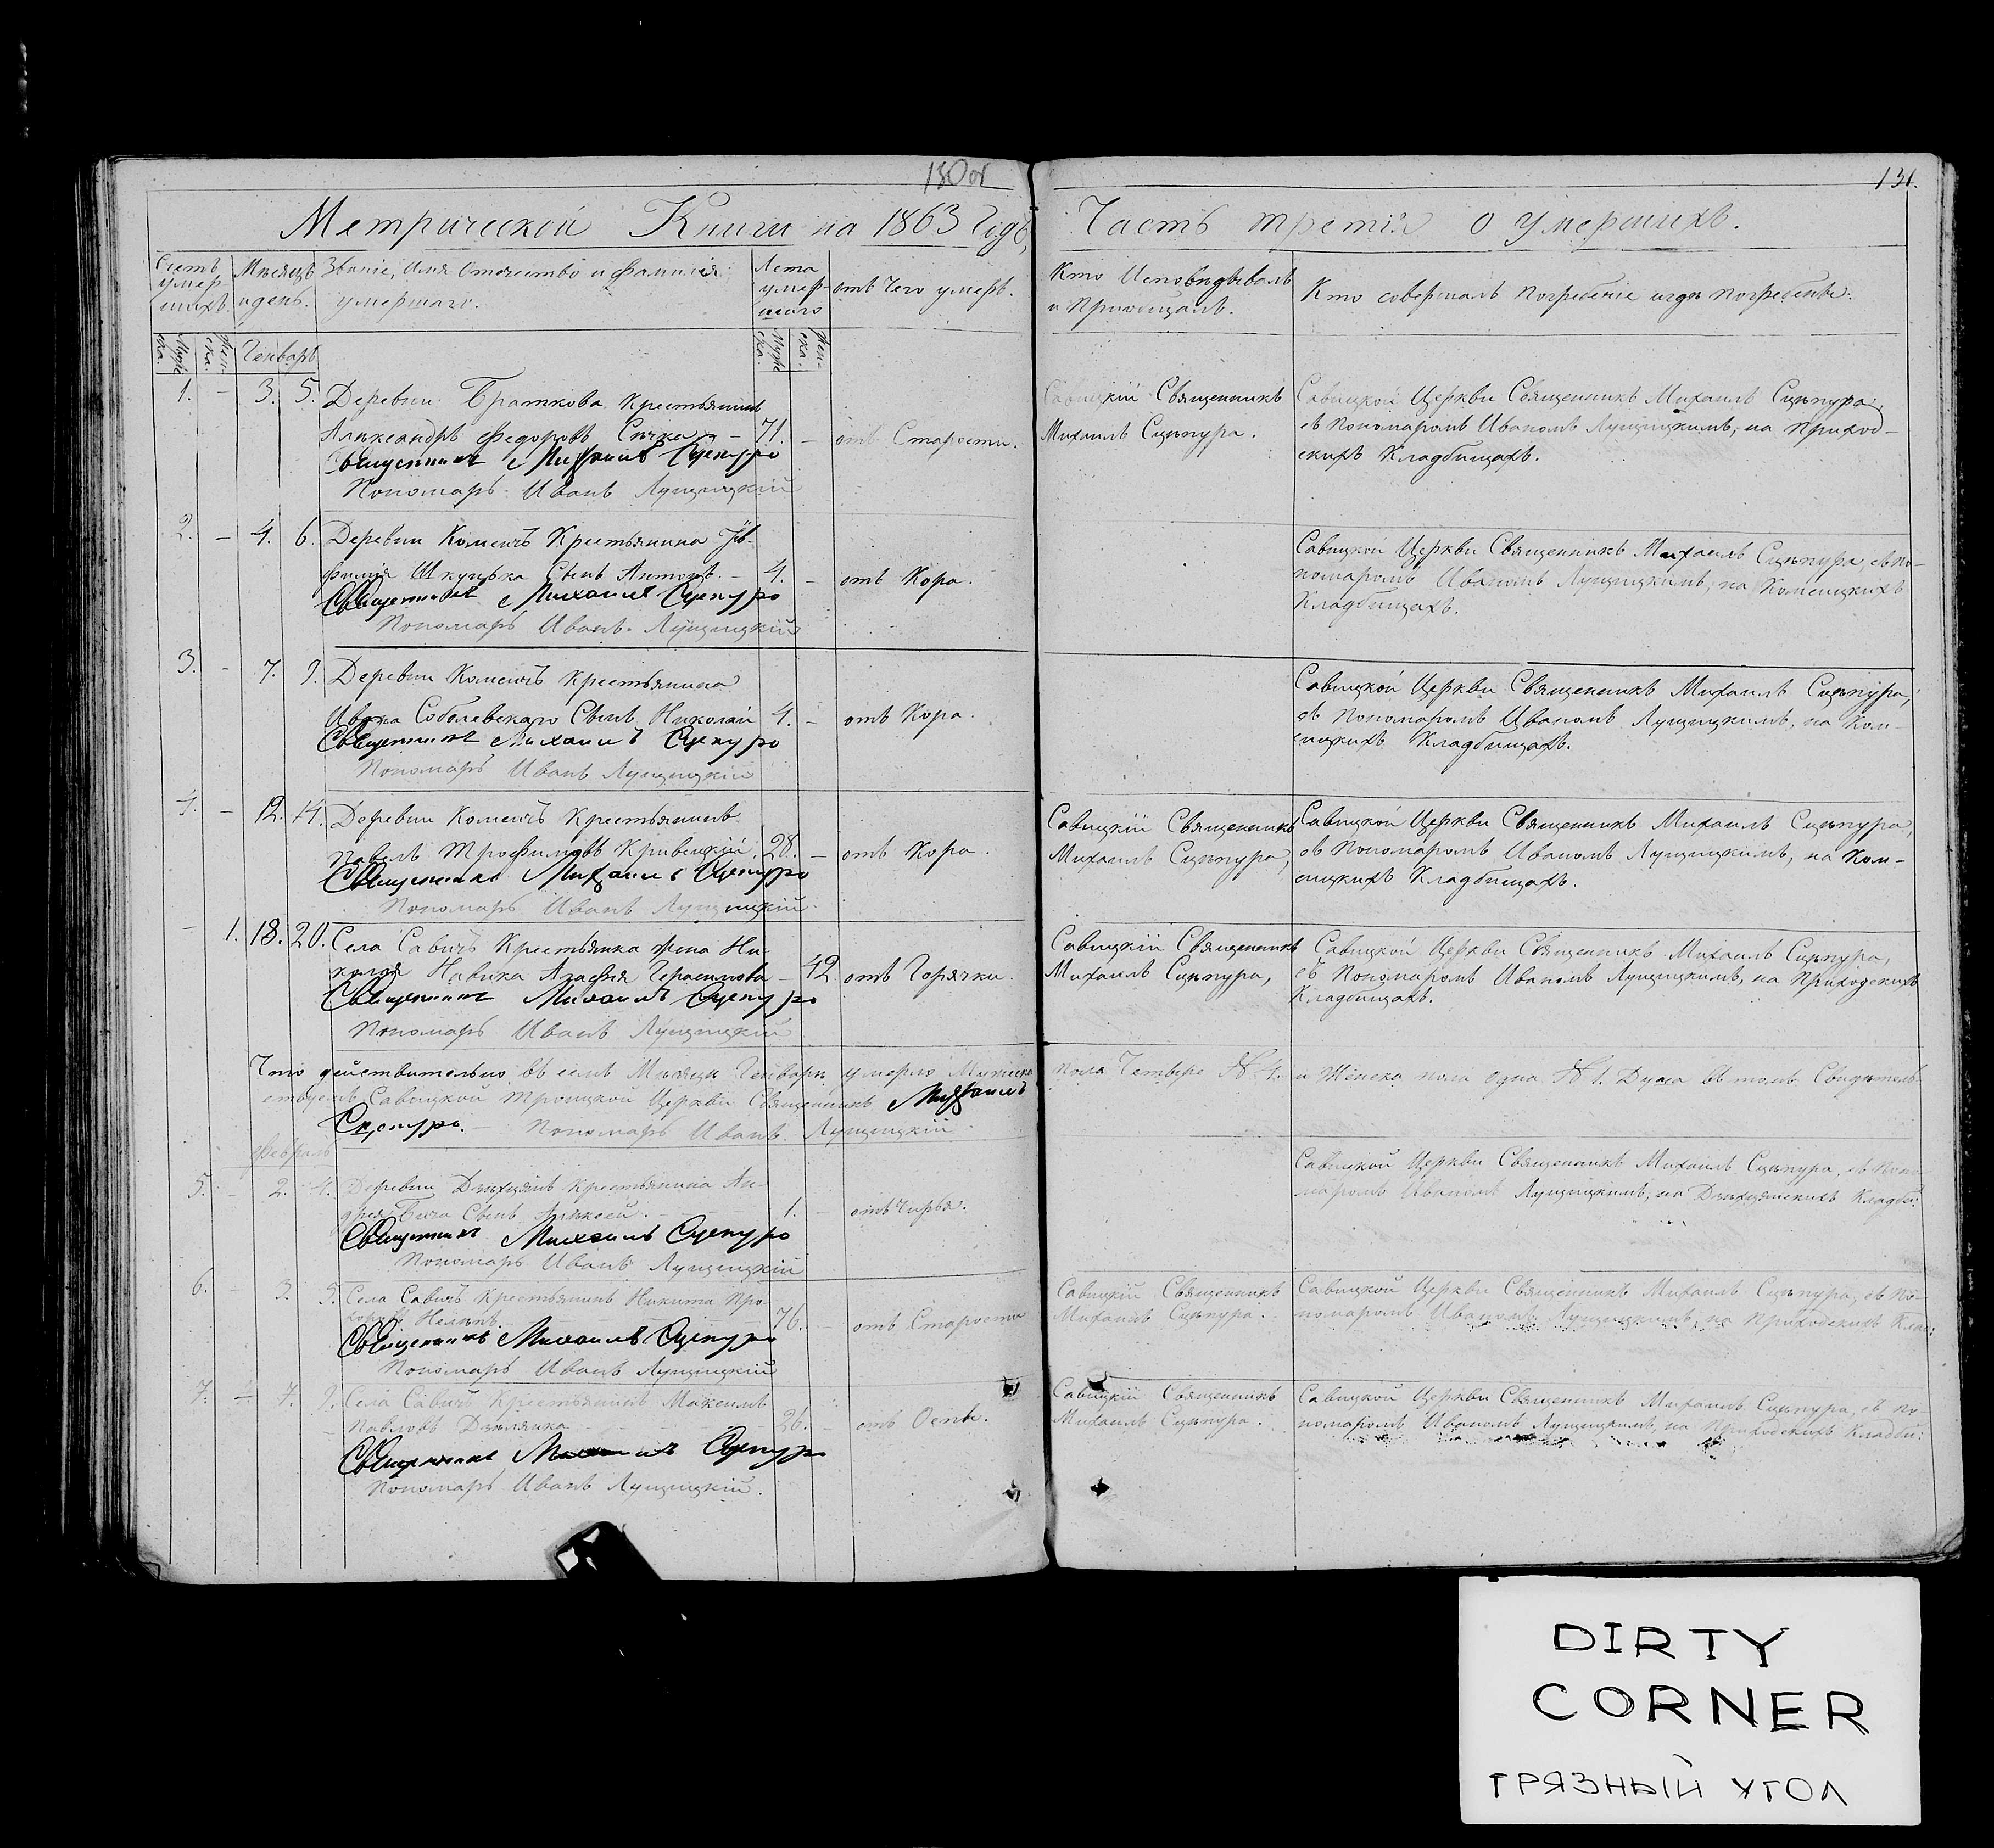 130 об
131.
Метрической Книги на 1863 Годъ,
Часть третія о умершихъ.
Счетъ умер шихъ.
Мѣсяцъ и день.
Званіе, Имя Отечество и фамилія умершаго.
Лета умер- шаго
отъ Чего умеръ.
Кто Исповѣдывалъ и Пріобщалъ.
Кто совершалъ Погребеніе и гдѣ Погребены.
Муже ска.
Жен- ска.
Генварь
Муже ска.
Жен- ска.
1. - 3. 5. Деревни Браткова Крестьянинъ
Александръ Федоровъ Сичка - 71. - отъ Старости.
Священникъ Михаилъ Сцепуро
Пономарь Иванъ Лущицкій
Савицкій Священникъ
Михаилъ Сцѣпура.
Савицкой Церкви Священникъ Михаилъ Сцѣпура,
съ Пономаромъ Иваномъ Лущицкимъ, на Приход-
скихъ Кладбищахъ.
2. - 4. 6. Деревни Коменъ Крестьянина Ев-
фимія Шкуцька Сынъ Антонъ. - 4. - отъ Кора.
Священникъ Михаилъ Сцепуро
Пономарь Иванъ Лущицкій
Савицкой Церкви Священникъ Михаилъ Сцѣпура, съ По-
номаромъ Иваномъ Лущицкимъ, на Коменцкихъ
Кладбищахъ.
3. - 7. 9. Деревни Коменъ Крестьянина
Ивана Соболевскаго Сынъ Николай 4. - отъ Кора.
Священникъ Михаилъ Сцепуро
Пономарь Иванъ Лущицкій
Савицкой Церкви Священникъ Михаилъ Сцѣпура,
съ Пономаромъ Иваномъ Лущицкимъ, на Ком-
енцкихъ Кладбищахъ.
4. - 12. 14. Деревни Коменъ Крестьянинъ
Павелъ Трофимовъ Кривецкій. 28. - отъ Кора.
Священникъ Михаилъ Сцепуро
Пономарь Иванъ Лущицкій.
Савицкій Священникъ
Михаилъ Сцѣпура,
Савицкой Церкви Священникъ Михаилъ Сцѣпура,
съ Пономаромъ Иваномъ Лущицкимъ, на Ком-
енцкихъ Кладбищахъ.
- 1. 18. 20. Села Савичъ Крестьянка жена Ни-
колая Навика Агафія Герасимова - 42. отъ Горячки.
Священникъ Михаилъ Сцепуро
Пономарь Иванъ Лущицкій
Савицкій Священникъ
Михаилъ Сцѣпура,
Савицкой Церкви Священникъ Михаилъ Сцѣпура,
съ Пономаромъ Иваномъ Лущицкимъ, на Приходскихъ
Кладбищахъ.
Что действительно въ семъ Мѣсяцѣ Генварѣ умерло Мужеска пола Четыре № 4. и Женска пола одна № 1. Душа въ томъ Свидѣтель-
ствуемъ Савицкой Троицкой Церкви Священникъ Михаилъ
Сцепуро. - Пономарь Иванъ Лущицкій.
Февраль
5. - 2. 4. Деревни Крестьянина Ан-
дрея Сынъ Алексей. - 1. - отъ Чирья.
Священникъ Михаилъ Сцепуро
Пономарь Иванъ Лущицкій
Савицкой Церкви Священникъ Михаилъ Сцѣпура, съ Поно-
маромъ Иваномъ Лущицкимъ, на Кладби:
6. - 3. 5. Села Савичъ Крестьянинъ Никита Про-
76. отъ Старости
Священникъ Михаилъ Сцепуро
Пономарь Иванъ Лущицкій
Савицкій Священникъ
Михаилъ Сцѣпура.
Савицкой Церкви Священникъ Михаилъ Сцѣпура, съ По-
номаромъ Иваномъ Лущицкимъ, на Приходскихъ Клад:
7. - 7. 9. Села Савичъ Крестьянинъ Максимъ
Павловъ 26. отъ Оспы.
Священникъ Михаилъ Сцепуро
Пономарь Иванъ Лущицкій.
Савицкій Священникъ
Михаилъ Сцѣпура.
Савицкой Церкви Священникъ Михаилъ Сцѣпура, съ По-
номаромъ Иваномъ Лущицкимъ, на Приходскихъ Кладби:
DIRTY
CORNER
ГРЯЗНЫЙ УГОЛ